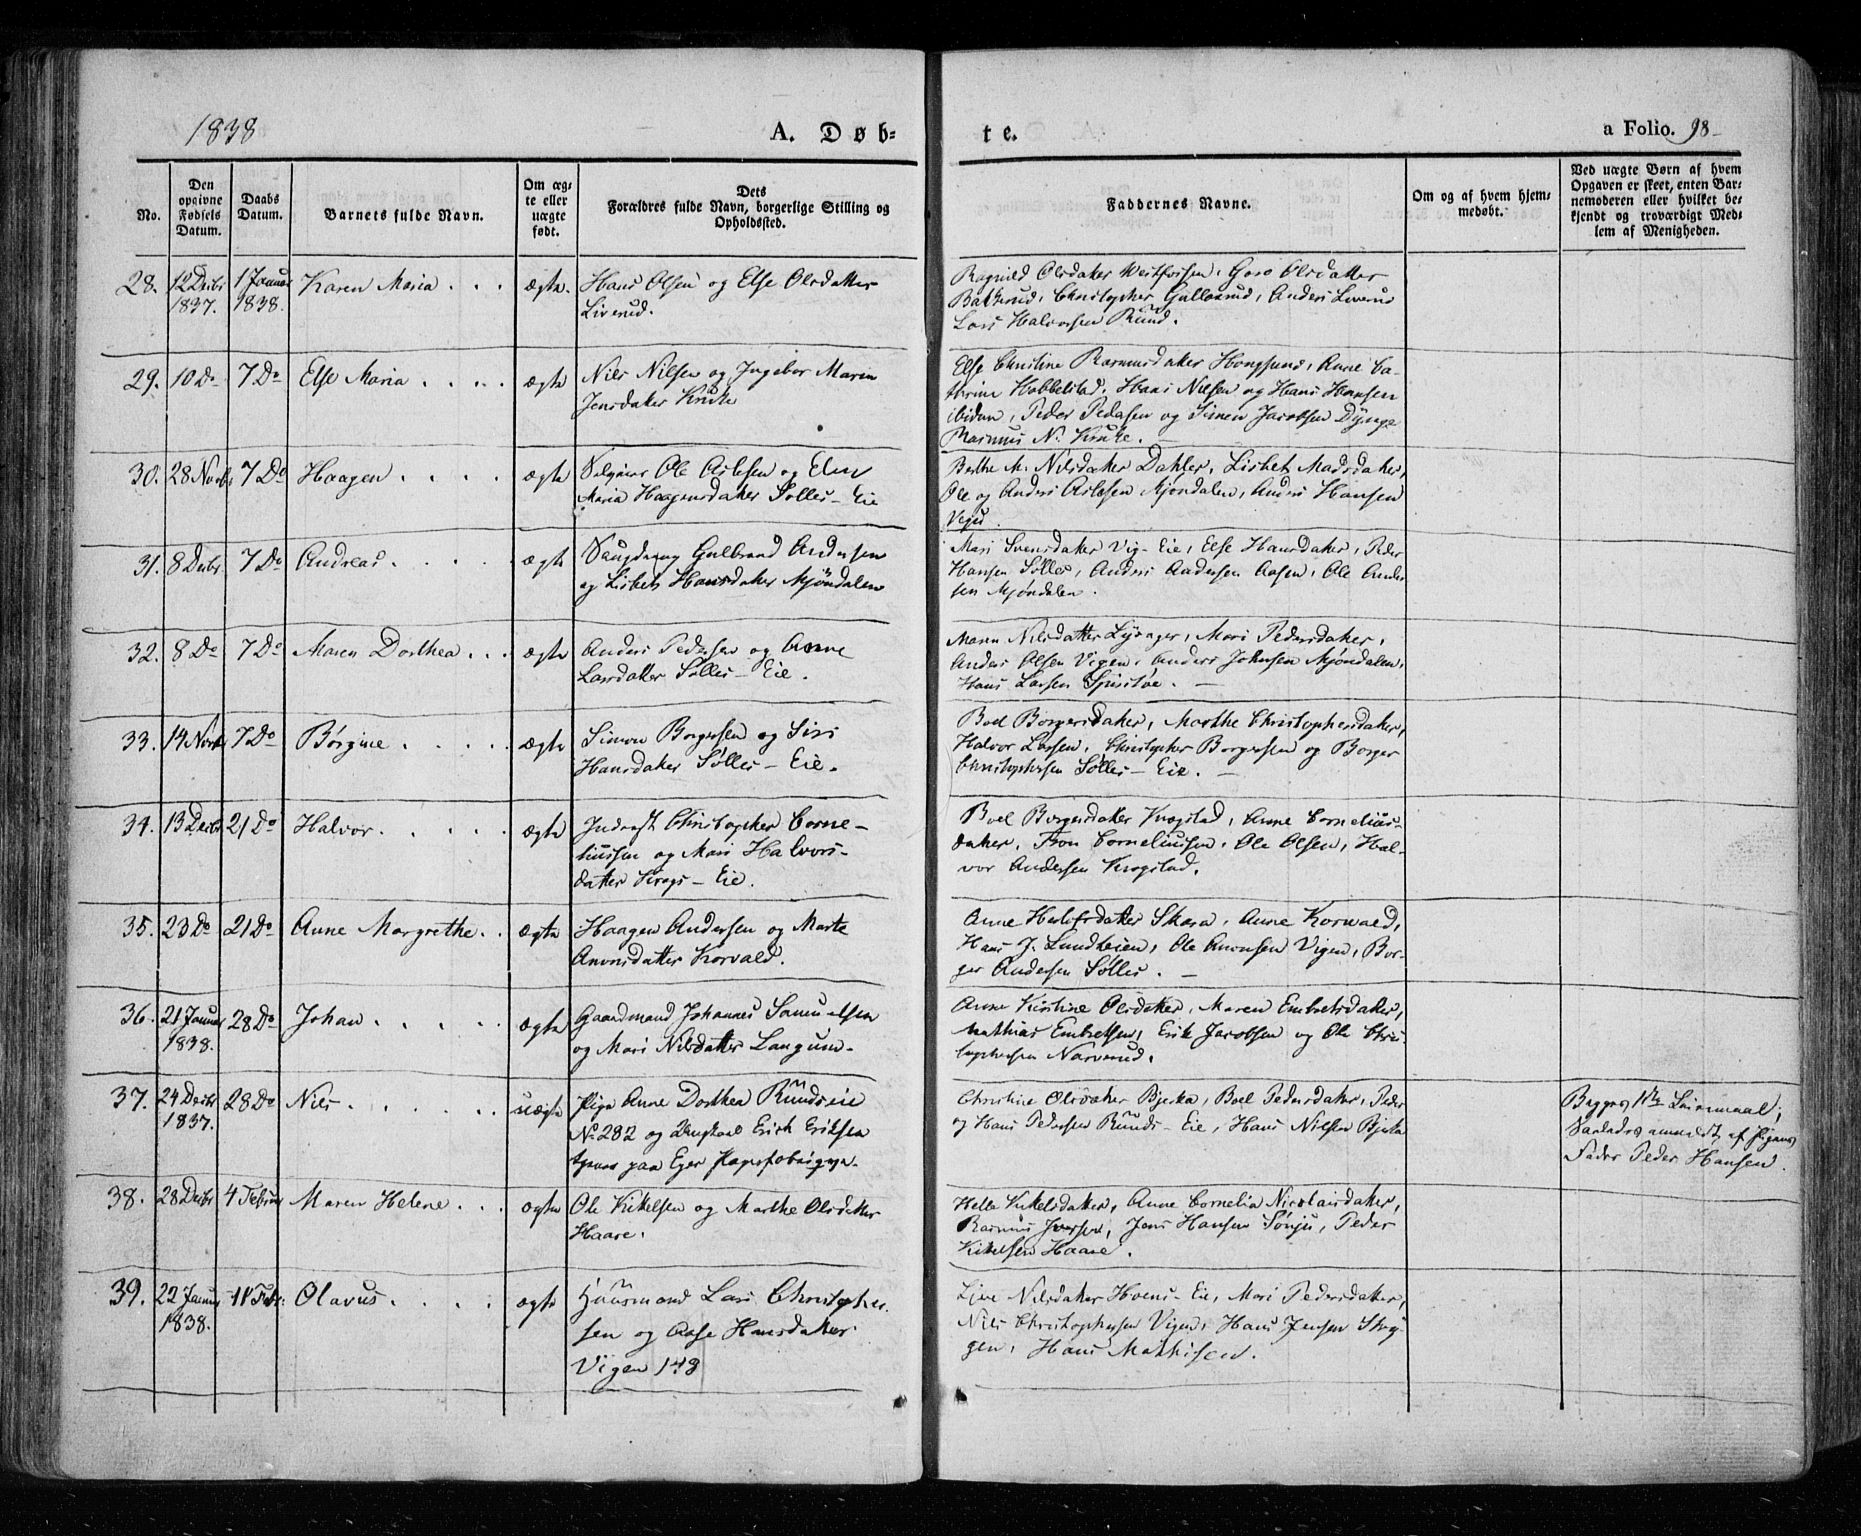 1838
A. Døb-
te.
a Folio. 98-
No.
Den opgivne Fødsels Datum.
Daabs Datum.
Barnets fulde Navn.
Om ægte eller uægte født.
Dets
Forældres fulde Navn, borgerlige Stilling og
Opholdssted.
Faddernes Navne.
Om og af hvem hjemmedøbt.
Ved uægte Børn af hvem
Opgaven er skeet, enten Barnemoderen eller hvilket bekjendt og troværdigt Medlem af Menigheden.
28. 12 Decbr 1837. 1 Januar 1838. Karen Maria . . . ægte.
Hans Olsen og Else Olsdatter
Liverud.
Ragnild Olsdatter Goro Olsdatter
Bakkerud, Christopher Gullerud, Anders Liverud
Lars Halvorsen Ruud.
29. 10 Do 7 Do Else Maria . . . . ægte
Niels Nilsen og Ingebor Maria
Jensdatter Kruke
Else Christine Rasmusdatter Hongsund, Anne Ca-
thrine Hobbelstad, Hans Nilsen og Hans Hansen
ibidem, Peder Pedersen og Simen Jacobsen Dynge
Rasmus N. Kruke. —
30. 28 Novbr 7 Do Haagen . . . . ægte
Ole Aslesen og Elen
Maria Haagensdatter Solles-Eie
Berthe M. Nilsdatter Dahler, Lisbet Madsdatter,
Ole og Anders Aslesen Mjøndalen, Anders Hansen
31. 8 Decbr 7 Do Andreas . . . . . ægte
Gulbrand Andersen
og Lisbet Hansdatter Mjøndalen
Mari Svensdatter Vig-Eie, Else Hansdatter, Peder
Hansen Solles, Anders Andersen Aasen, Ole Ander
sen Mjøndalen.
32. 8 Do 7 Do Maren Dorthea . . . ægte
Anders Pedersen og Anne
Larsdatter Solles-Eie.
Maren Nilsdatter Mari Pedersdatter,
Anders Olsen Vigen, Anders Johnsen Mjøndalen,
Hans Larsen —
33. 14 Novbr 7 Do Børgine . . . . . ægte
Simon Borgersen og Siri
Hansdatter Sølles-Eie.
Boel Borgersdatter, Marthe Christophersdatter,
Halvor Larsen, Christopher Borgersen og Borger
Christophersen Sølles-Eie. —
34. 13 Decbr 21 Do Halvor . . . . . ægte
Inderst Christopher Corne-
liussen og Mari Halvors-
datter Krogs-Eie.
Boel Borgersdatter Krogstad, Anne Cornelius-
datter, Corneliussen, Ole Olsen, Hal-
vor Andersen Krogstad.
35. 23 Do 21 Do Anne Margrethe . . ægte
Haagen Andersen og Marte
Amonsdatter Korvald.
Anne Skara, Anne Korvald,
Hans J. Lundteien, Ole Amonsen Vigen, Bor-
ger Andersen Sølles. —
36. 21 Januar 1838. 28 Do Johan . . . . . ægte
Gaardmand Johannes Samuelsen
og Mari Nilsdatter Langum-
Anne Kirstine Olsdatter, Maren Embretsdatter,
Mathias Embretsen, Erik Jacobsen og Ole Chris-
tophersen Narverud.
37. 24 Decbr 1837. 28 Do Nils . . . . . . uægte
Pige Anne Dorthea Ruudseie
No 282 og Ungkarl Erich Eriksen
paa Eger
Christine Olsdatter Bjerka, Boel Pedersdatter, Peder
og Hans Pedersen Ruuds-Eie, Hans Nilsen Bjerka
Begges 1ste Leiermaal,
Saaledes anmeldt af Pigens
Fader Peder Hansen.
38. 28 Decbr 4 Februar Maren Helene . . . ægte
Ole Kikelsen og Marthe Olsdatter
Haare.
Helle Kikelsdatter, Anne Cornelia Nicolaisdatter,
Rasmus Iversen, Jens Hansen Sønju, Peder
Kikelsen Haare.
39. 22 Januar 1838. 11 Febr. Olavus . . . . . ægte
Huusmand Lars Christopher
sen og Aase Hansdatter
Vigen 148
Live Nilsdatter Hoens-Eie, Mari Pedersdatter,
Nils Christophersen Vigen, Hans Jensen
gen, Hans Mathisen.